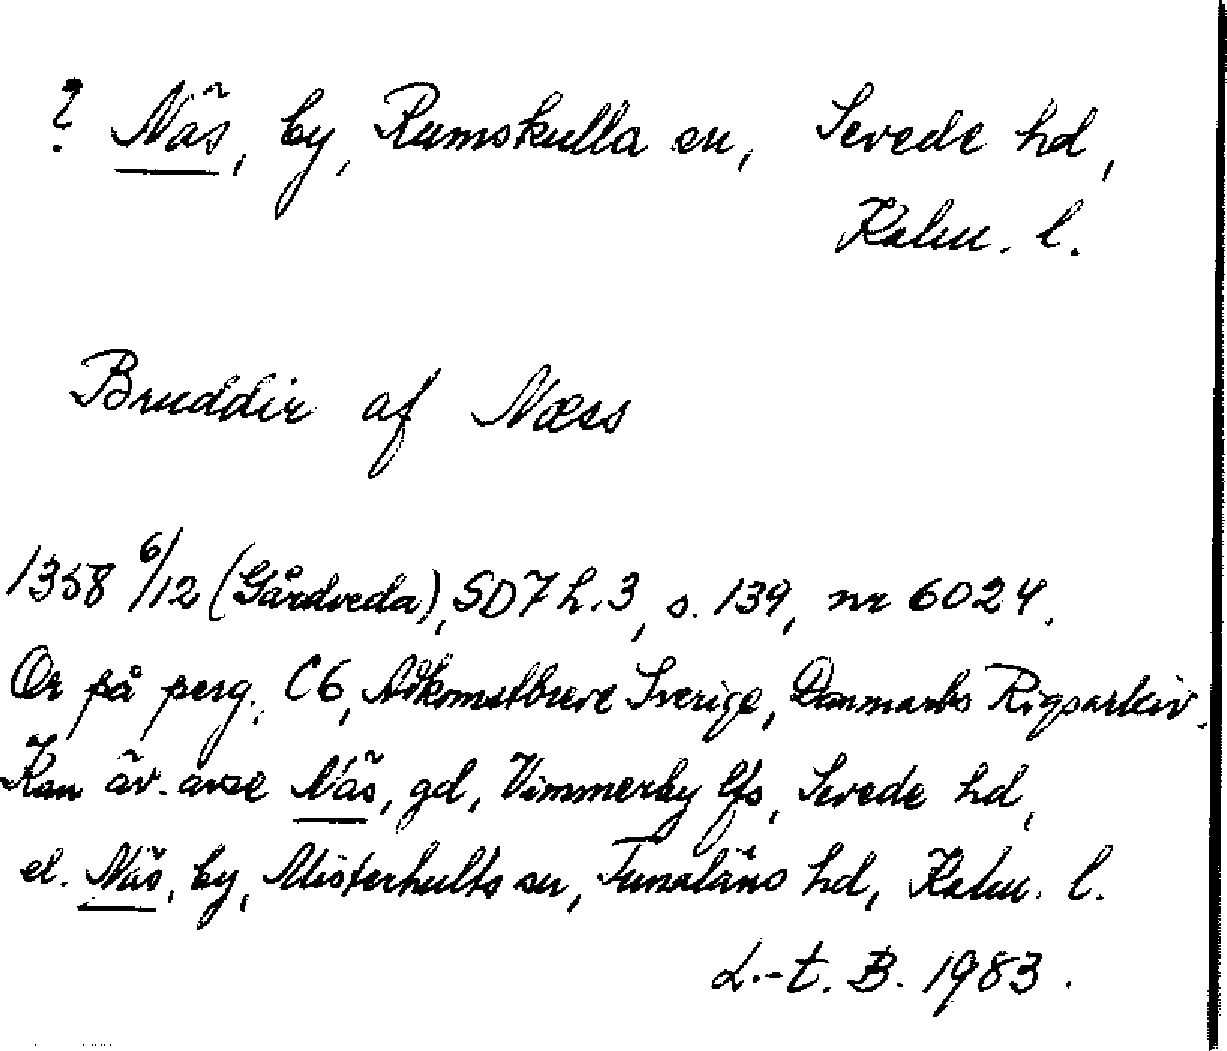 ? Näs, by, Rumskulla sn, Sevede hd,
Kalm. l.
Bruddir af Næss
1358 6/12 (Gårdveda), SD7 h.3, s. 139, nr 6024.
Or på perg., C6, Adkomstbreve Sverige, Danmarks Rigsarkiv.
Kan äv. avse Näs, gd, Vimmerby lfs, Sevede hd,
el. Näs, by, Misterhults sn, Tunaläns hd, Kalm. l.
L.-t. B. 1983.